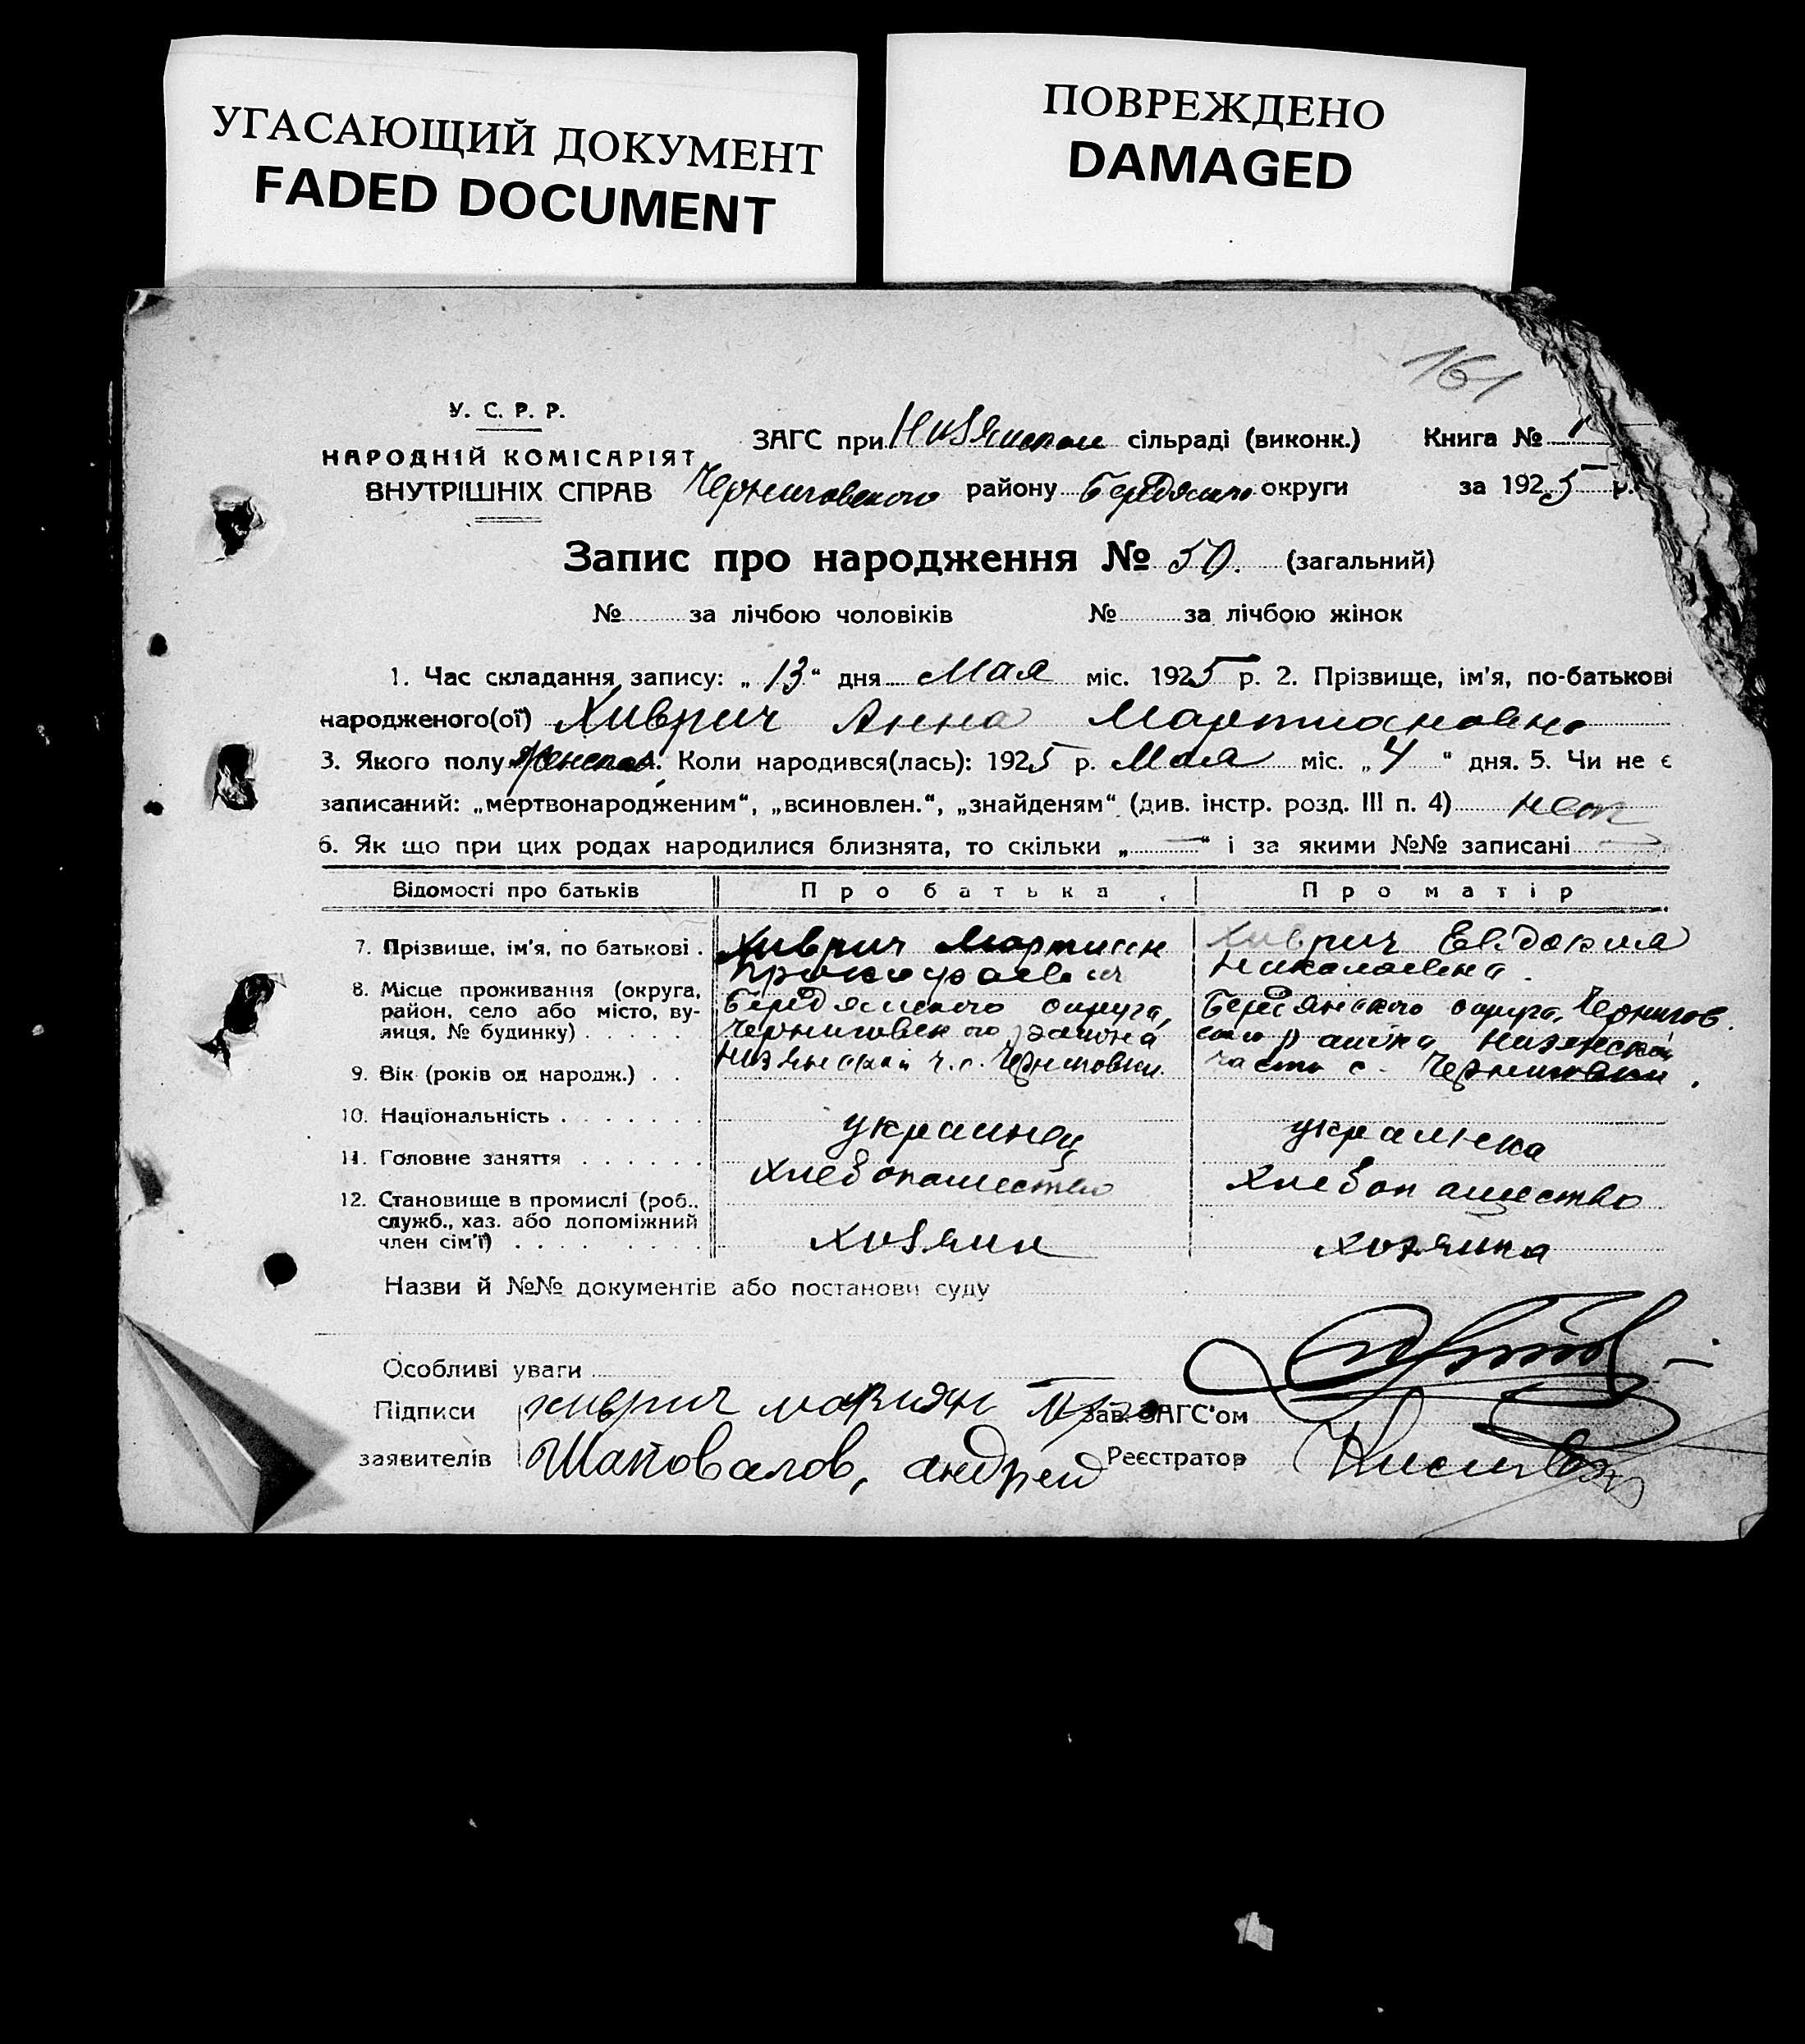 УГАСАЮЩИЙ ДОКУМЕНТ
FADED DOCUMENT
ПОВРЕЖДЕНО
DAMAGED
161
У. С. Р. Р.
НАРОДНІЙ КОМІСАРІЯТ
ВНУТРІШНІХ СПРАВ
ЗАГС при Низянском сільраді (виконк.) Книга №
Черниговского району Бердянско округи за 1925 р.
Запис про народження № 50. (загальний)
№ за лічбою чоловіків № за лічбою жінок
1. Час складання запису: „ 13 “ дня Мая міс. 1925 р. 2. Прізвище, ім'я, по-батькові
народженого(ої) Хиврич Анна Мартиановна
3. Якого полу женская 4. Коли народився(лась): 1925 р. Мая міс. „ 4 “ дня. 5. Чи не є
записаний: „мертвонародженим“, „всиновлен.“, „знайденям“ (див. інстр. розд. III п. 4) нет
6. Як що при цих родах народилися близнята, то скільки „ — “ і за якими №№ записані —
Відомості про батьків Про батька Про матір
7. Прізвище, ім'я, по батькові . Хиврич Мартиян Хиврич Евдокия
Прокофаевич Николаевна.
8. Місце проживання (округа, район, село або місто, вулиця, № будинку) . . . . .
Бердянского округа, Черниговского района Низянской ч. с. Черниговки.
Бердянского округа, Черниговского района Низянской часть с. Черниговки.
9. Вік (років од народж.) . .
10. Національність . . . . . . . украинец украинка
11. Головне заняття . . . . . . хлебопашество хлебопашество
12. Становище в промислі (роб.,
служб., хаз. або допоміжний
член сім'ї) . . . . . . . . хозяин хозяйка
Назви й №№ документів або постанови суду
Особливі уваги
Підписи хиврич мартиян Зав. ЗАГС'ом
заявителів Шаповалов, андрей Реєстратор